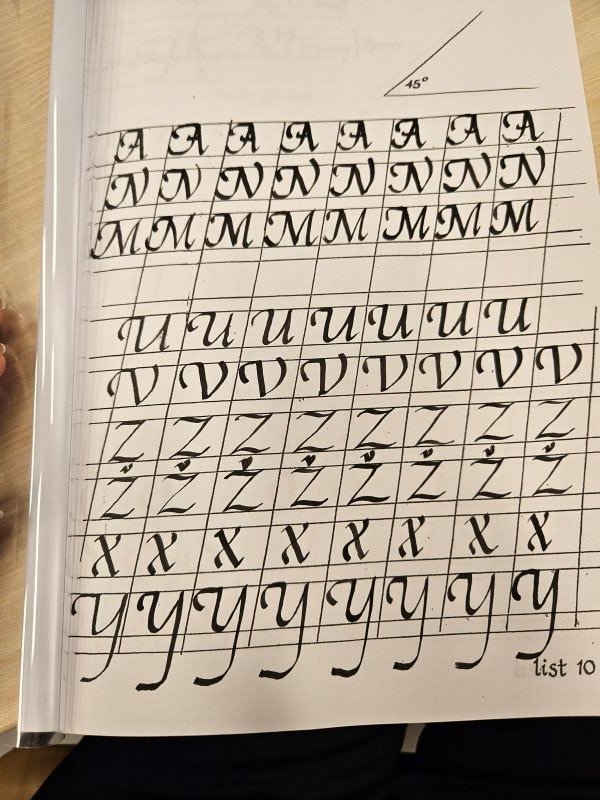 45°
A A A A A A A A
N N N N N N N N
M M M M M M M M
U U U U U U U
V V V V V V V V
Z Z Z Z Z Z Z Z
Ž Ž Ž Ž Ž Ž Ž Ž
X X X X X X X X
Y Y Y Y Y Y Y Y
list 10